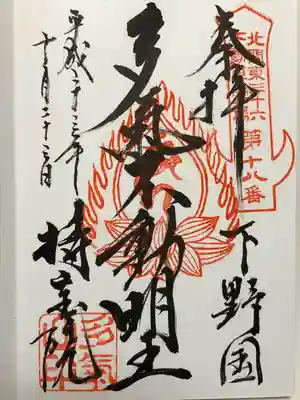 奉拝
下野国
北関東三十六
不動尊霊場
第十八番
多氣不動明王
持宝院
平成二十三年
十二月二十三日